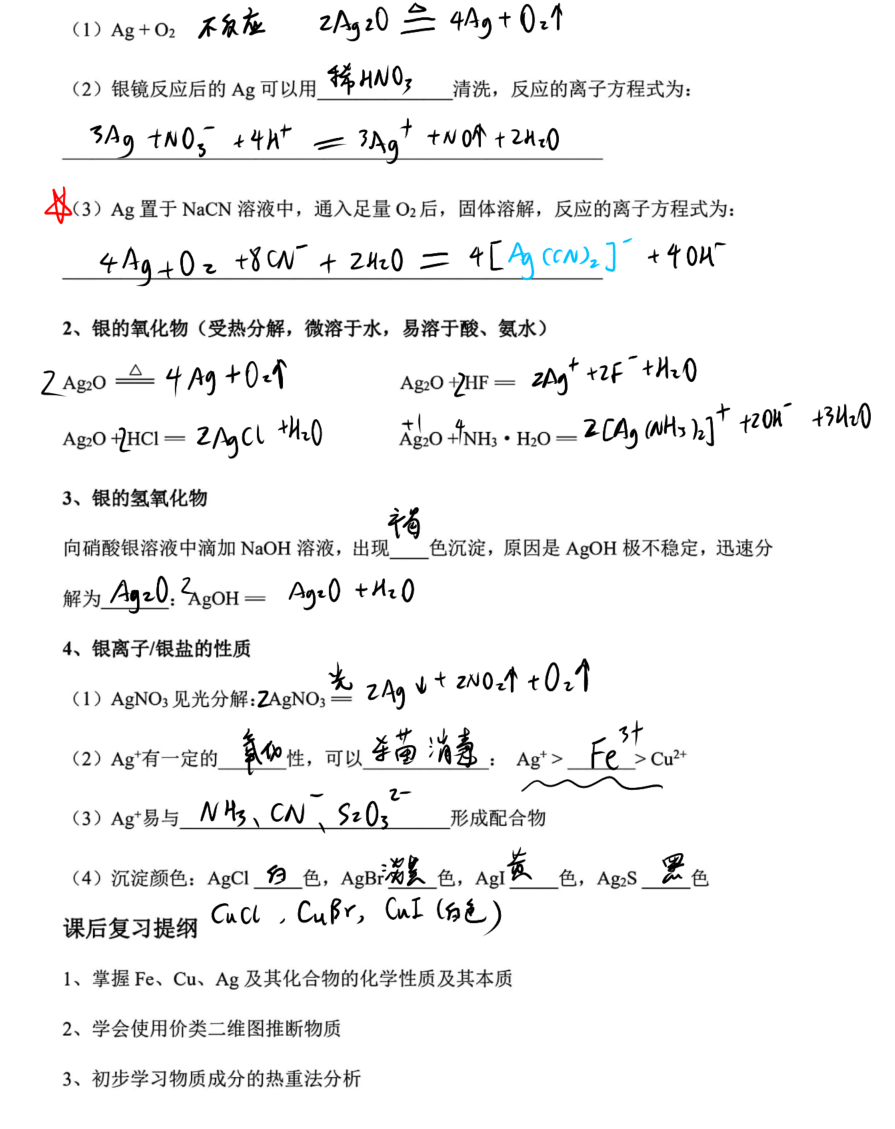 （1）Ag + O₂ 不反应 2Ag₂O ≜ 4Ag + O₂↑
（2）银镜反应后的 Ag 可以用 稀HNO₃ 清洗，反应的离子方程式为：
3Ag + NO₃⁻ + 4H⁺ = 3Ag⁺ + NO↑ + 2H₂O
（3）Ag 置于 NaCN 溶液中，通入足量 O₂ 后，固体溶解，反应的离子方程式为：
4Ag + O₂ + 8CN⁻ + 2H₂O = 4[Ag(CN)₂]⁻ + 4OH⁻
2、银的氧化物（受热分解，微溶于水，易溶于酸、氨水）
2Ag₂O ≜ 4Ag + O₂↑ Ag₂O + 2HF = 2Ag⁺ + 2F⁻ + H₂O
Ag₂O + 2HCl = 2AgCl + H₂O +1 Ag₂O + 4NH₃·H₂O = 2[Ag(NH₃)₂]⁺ + 2OH⁻ + 3H₂O
3、银的氢氧化物
向硝酸银溶液中滴加 NaOH 溶液，出现 褐 色沉淀，原因是 AgOH 极不稳定，迅速分
解为 Ag₂O：2AgOH = Ag₂O + H₂O
4、银离子/银盐的性质
（1）AgNO₃ 见光分解：2AgNO₃ 光= 2Ag↓ + 2NO₂↑ + O₂↑
（2）Ag⁺有一定的 氧化 性，可以 杀菌消毒 ： Ag⁺ > Fe³⁺ > Cu²⁺
（3）Ag⁺易与 NH₃、CN⁻、S₂O₃²⁻ 形成配合物
（4）沉淀颜色：AgCl 白 色，AgBr 淡黄 色，AgI 黄 色，Ag₂S 黑 色
课后复习提纲 CuCl，CuBr，CuI（白色）
1、掌握 Fe、Cu、Ag 及其化合物的化学性质及其本质
2、学会使用价类二维图推断物质
3、初步学习物质成分的热重法分析